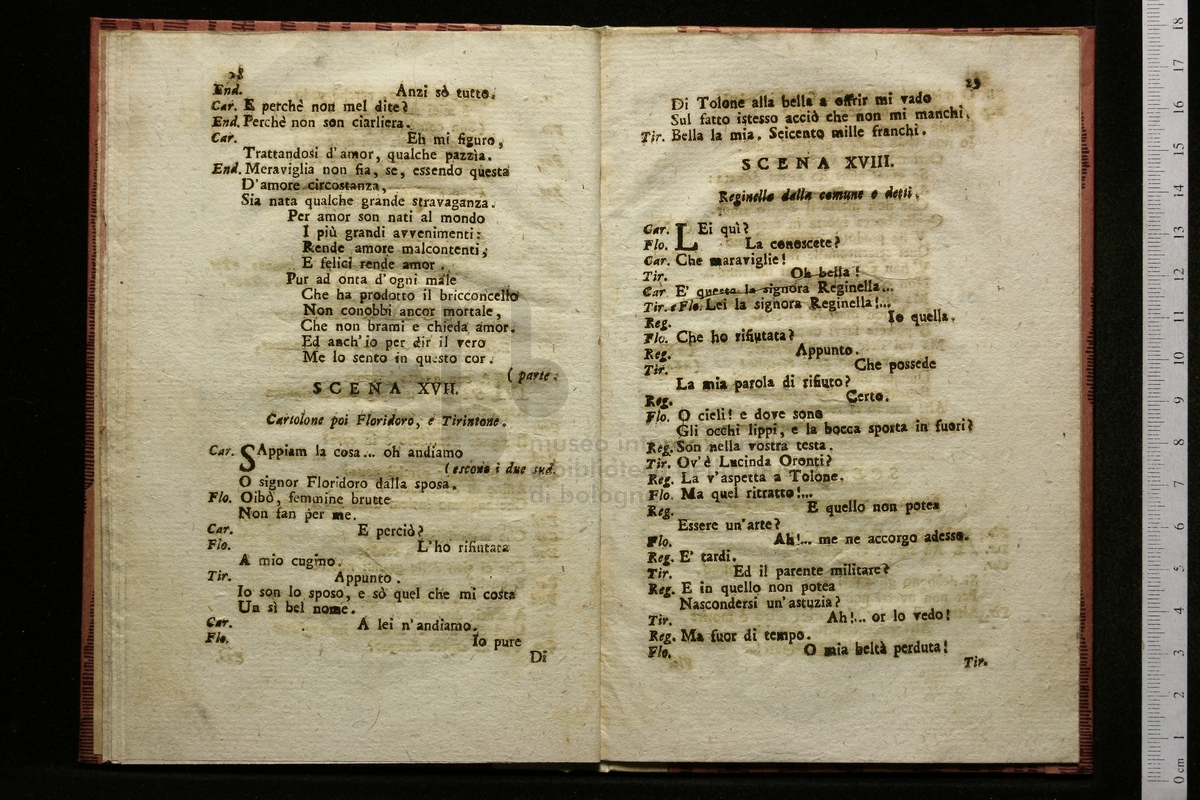 28
End. Anzi sò tutto.
Car. E perchè non mel dite?
End. Perchè non son ciarliera.
Car. Eh mi figuro,
Trattandosi d'amor, qualche pazzia.
End. Meraviglia non fia, se, essendo questa
D'amore circostanza,
Sia nata qualche grande stravaganza.
Per amor son nati al mondo
I più grandi avvenimenti:
Rende amore malcontenti,
E felici rende amor.
Pur ad onta d'ogni male
Che ha prodotto il bricconcello
Non conobbi ancor mortale,
Che non brami e chieda amor.
Ed anch'io per dir il vero
Me lo sento in questo cor.
(parte.
SCENA XVII.
Cartolone poi Floridoro, e Tirintone.
Car. SAppiam la cosa... oh andiamo
(escono i due sud.
O signor Floridoro dalla sposa.
Flo. Oibò, femmine brutte
Non fan per me.
Car. E perciò?
Flo. L'ho rifiutata
A mio cugino.
Tir. Appunto.
Io son lo sposo, e sò quel che mi costa
Un sì bel nome.
Car. A lei n'andiamo.
Flo. Io pure
Di
29
Di Tolone alla bella a offrir mi vado
Sul fatto istesso acciò che non mi manchi.
Tir. Bella la mia. Seicento mille franchi.
SCENA XVIII.
Reginella dalla comune e detti.
Car. LEi quì?
Flo. La conoscete?
Car. Che maraviglie!
Tir. Oh bella!
Car. E' questa la signora Reginella...
Tir. e Flo. Lei la signora Reginella!...
Reg. Io quella.
Flo. Che ho rifiutata?
Reg. Appunto.
Tir. Che possede
La mia parola di rifiuto?
Reg. Certo.
Flo. O cieli! e dove sono
Gli occhi lippi, e la bocca sporta in fuori?
Reg. Son nella vostra testa.
Tir. Ov'è Lucinda Oronti?
Reg. La v'aspetta a Tolone.
Flo. Ma quel ritratto!...
Reg. E quello non potea
Essere un'arte?
Flo. Ah!... me ne accorgo adesso.
Reg. E' tardi.
Tir. Ed il parente militare?
Reg. E in quello non potea
Nascondersi un'astuzia?
Tir. Ah!... or lo vedo!
Reg. Ma fuor di tempo.
Flo. O mia beltà perduta!
Tir.